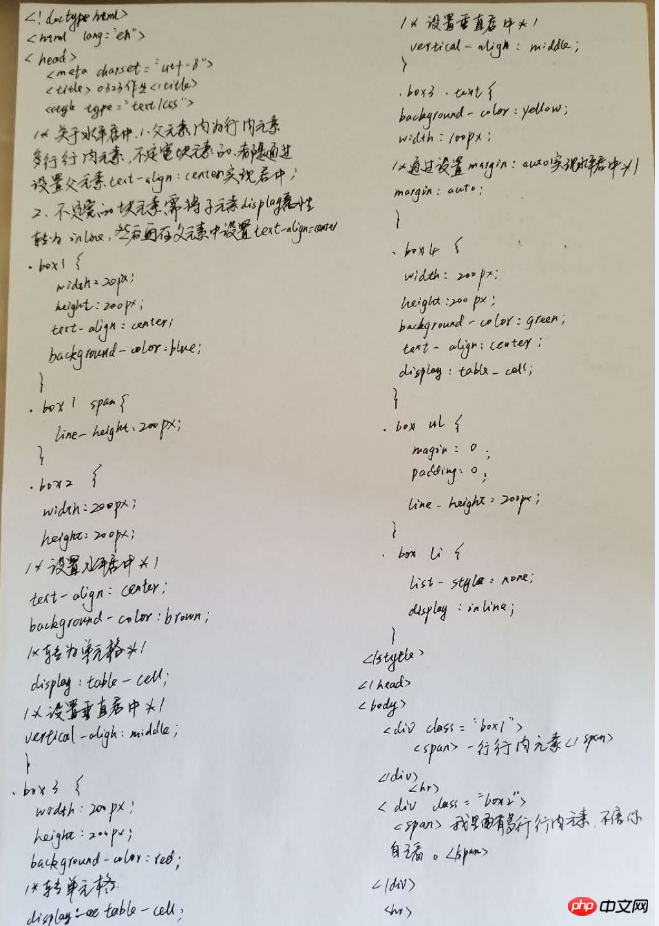 <!doctype html>
<html lang="en">
<head>
<meta charset="utf-8">
<title>0323作业</title>
<style type="text/css">
/* 关于水平居中,1.父元素内为行内元素
多行行内元素,不定宽块元素的,都是通过
设置父元素text-align:center实现居中;
2、不定宽的块元素,需将子元素display属性
转为inline,然后再在父元素中设置text-align=center
.box1 {
width:20px;
height:200px;
text-align:center;
background-color:blue;
}
.box1 span{
line-height:200px;
}
.box2 {
width:200px;
height:200px;
/* 设置水平居中*/
text-align:center;
background-color:brown;
/*转为单元格*/
display:table-cell;
/* 设置垂直居中*/
vertical-align:middle;
}
.box3 {
width:200px;
height:200px;
background-color:red;
/*转单元格
display: table-cell;
/* 设置垂直居中*/
vertical-align:middle;
}
.box3 .text{
background-color:yellow;
width:100px;
/*通过设置margin:auto实现水平居中*/
margin:auto;
}
.box4 {
width:200px;
height:200px;
background-color:green;
text-align:center;
display:table-cell;
}
.box ul {
margin:0;
padding:0;
line-height:200px;
}
.box li {
list-style:none;
display:inline;
}
</style>
</head>
<body>
<div class="box1">
<span>一行行内元素</span>
</div>
<hr>
<div class="box2">
<span>我里面有多行行内元素,不信你
自己看。</span>
</div>
<hr>
php中文网